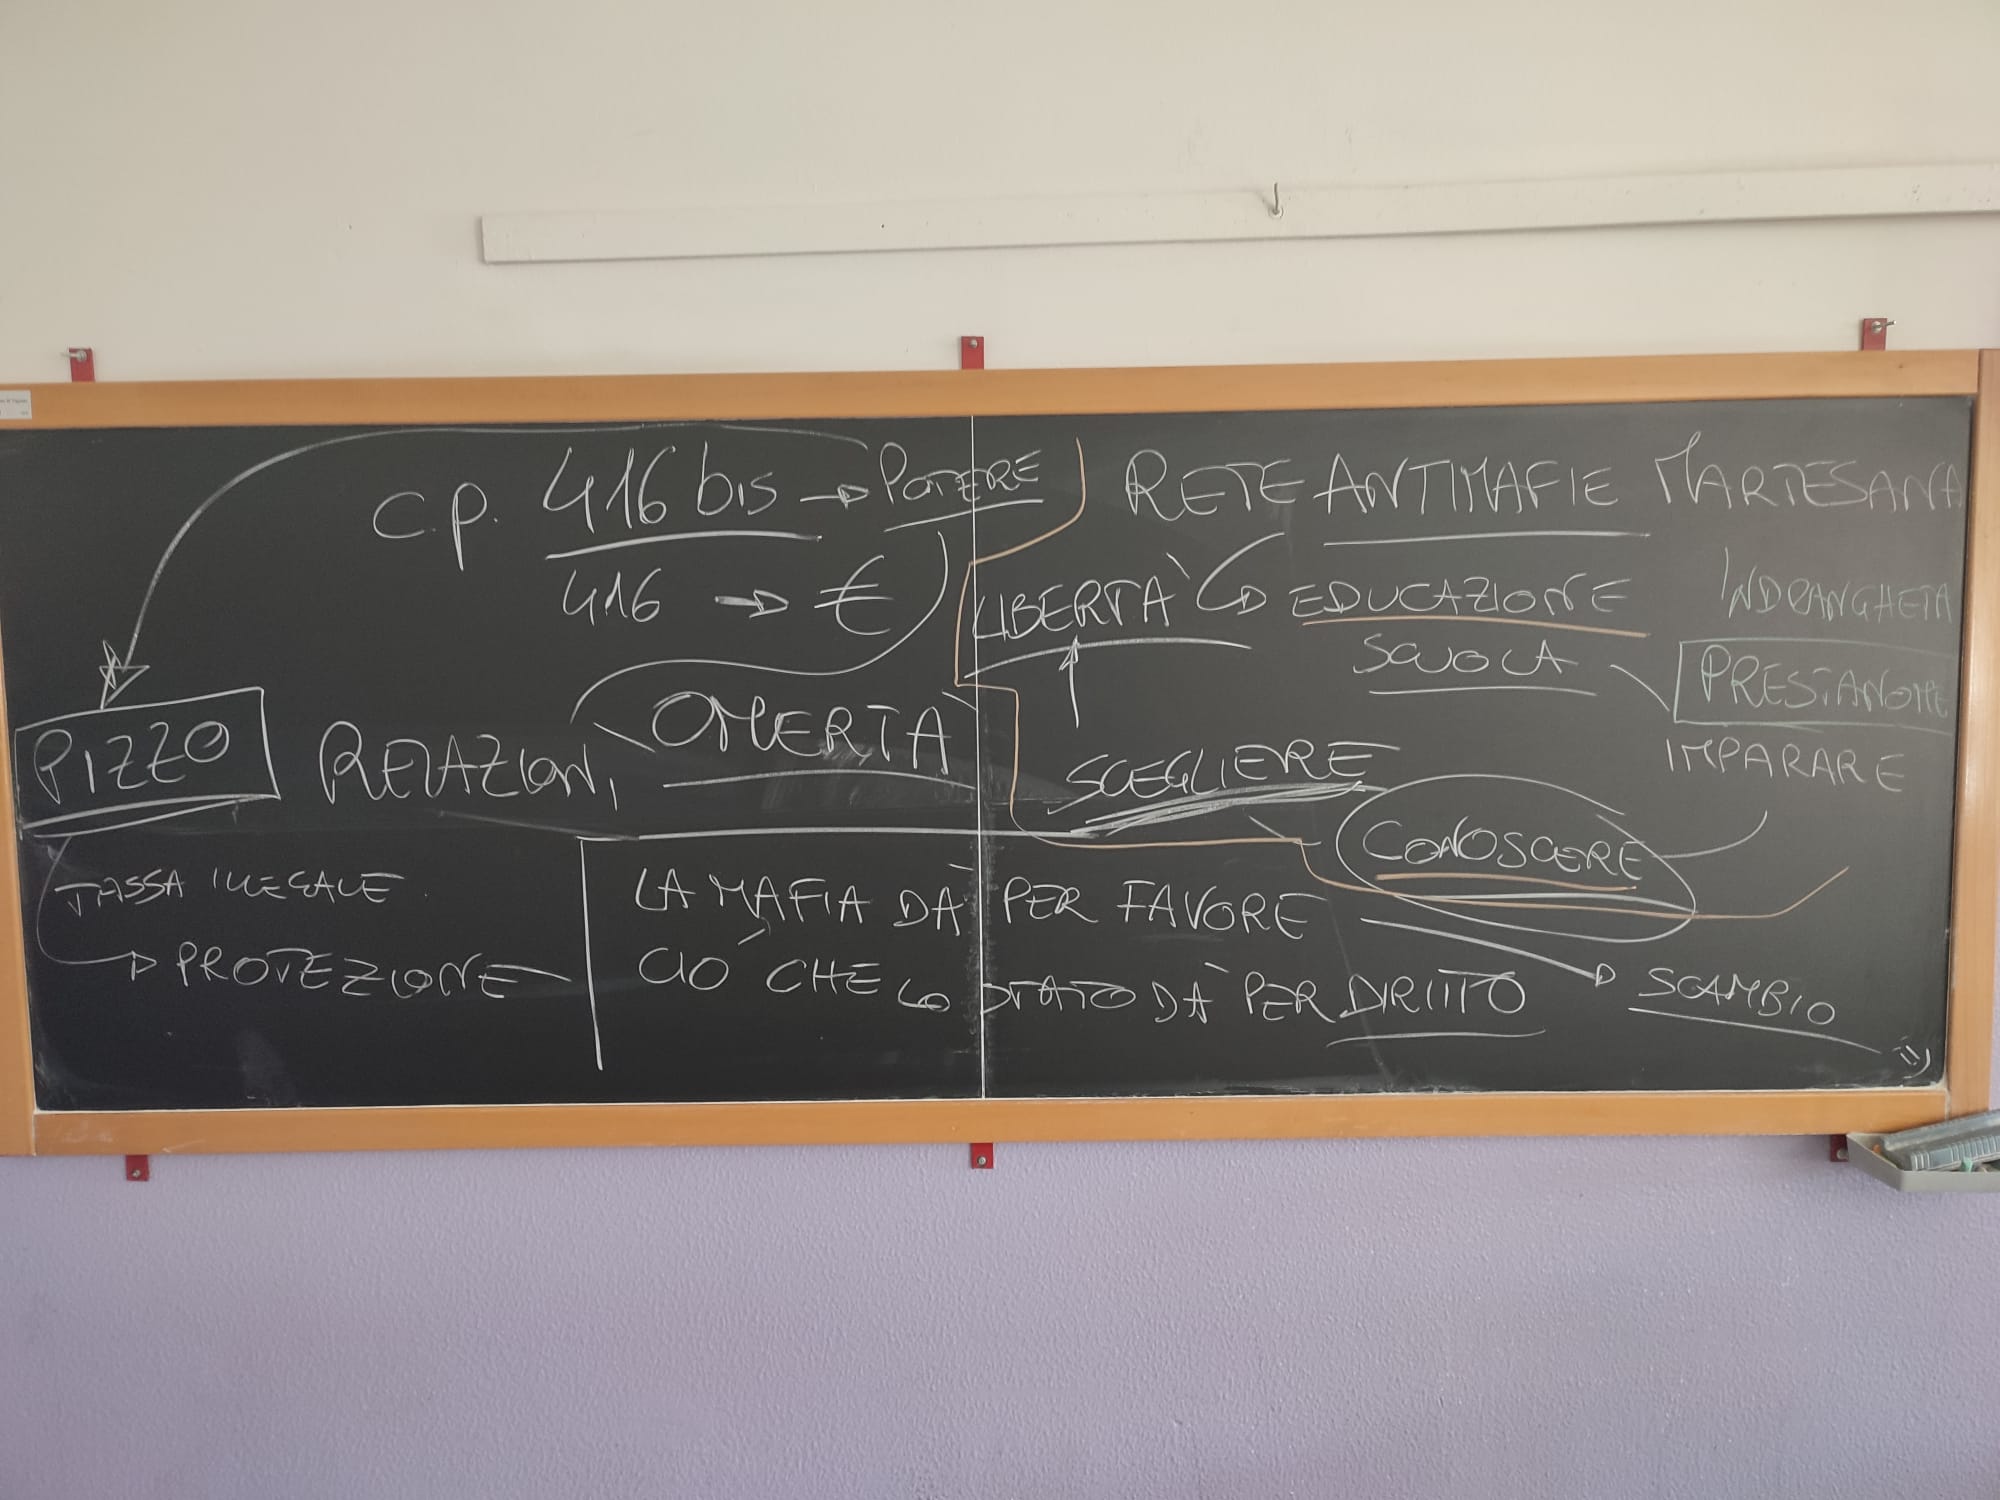 C.P. 416 bis → POTERE
416 → €
PIZZO
RELAZIONI
OMERTA
TASSA ILLEGALE
→ PROTEZIONE
LA MAFIA DÀ PER FAVORE
CIÒ CHE LO STATO DÀ PER DIRITTO
→ SCAMBIO
RETE ANTIMAFIE MARTESANA
LIBERTÀ
→ EDUCAZIONE
SCUOLA
INDRANGHETA
PRESTANOME
IMPARARE
SCEGLIERE
CONOSCERE